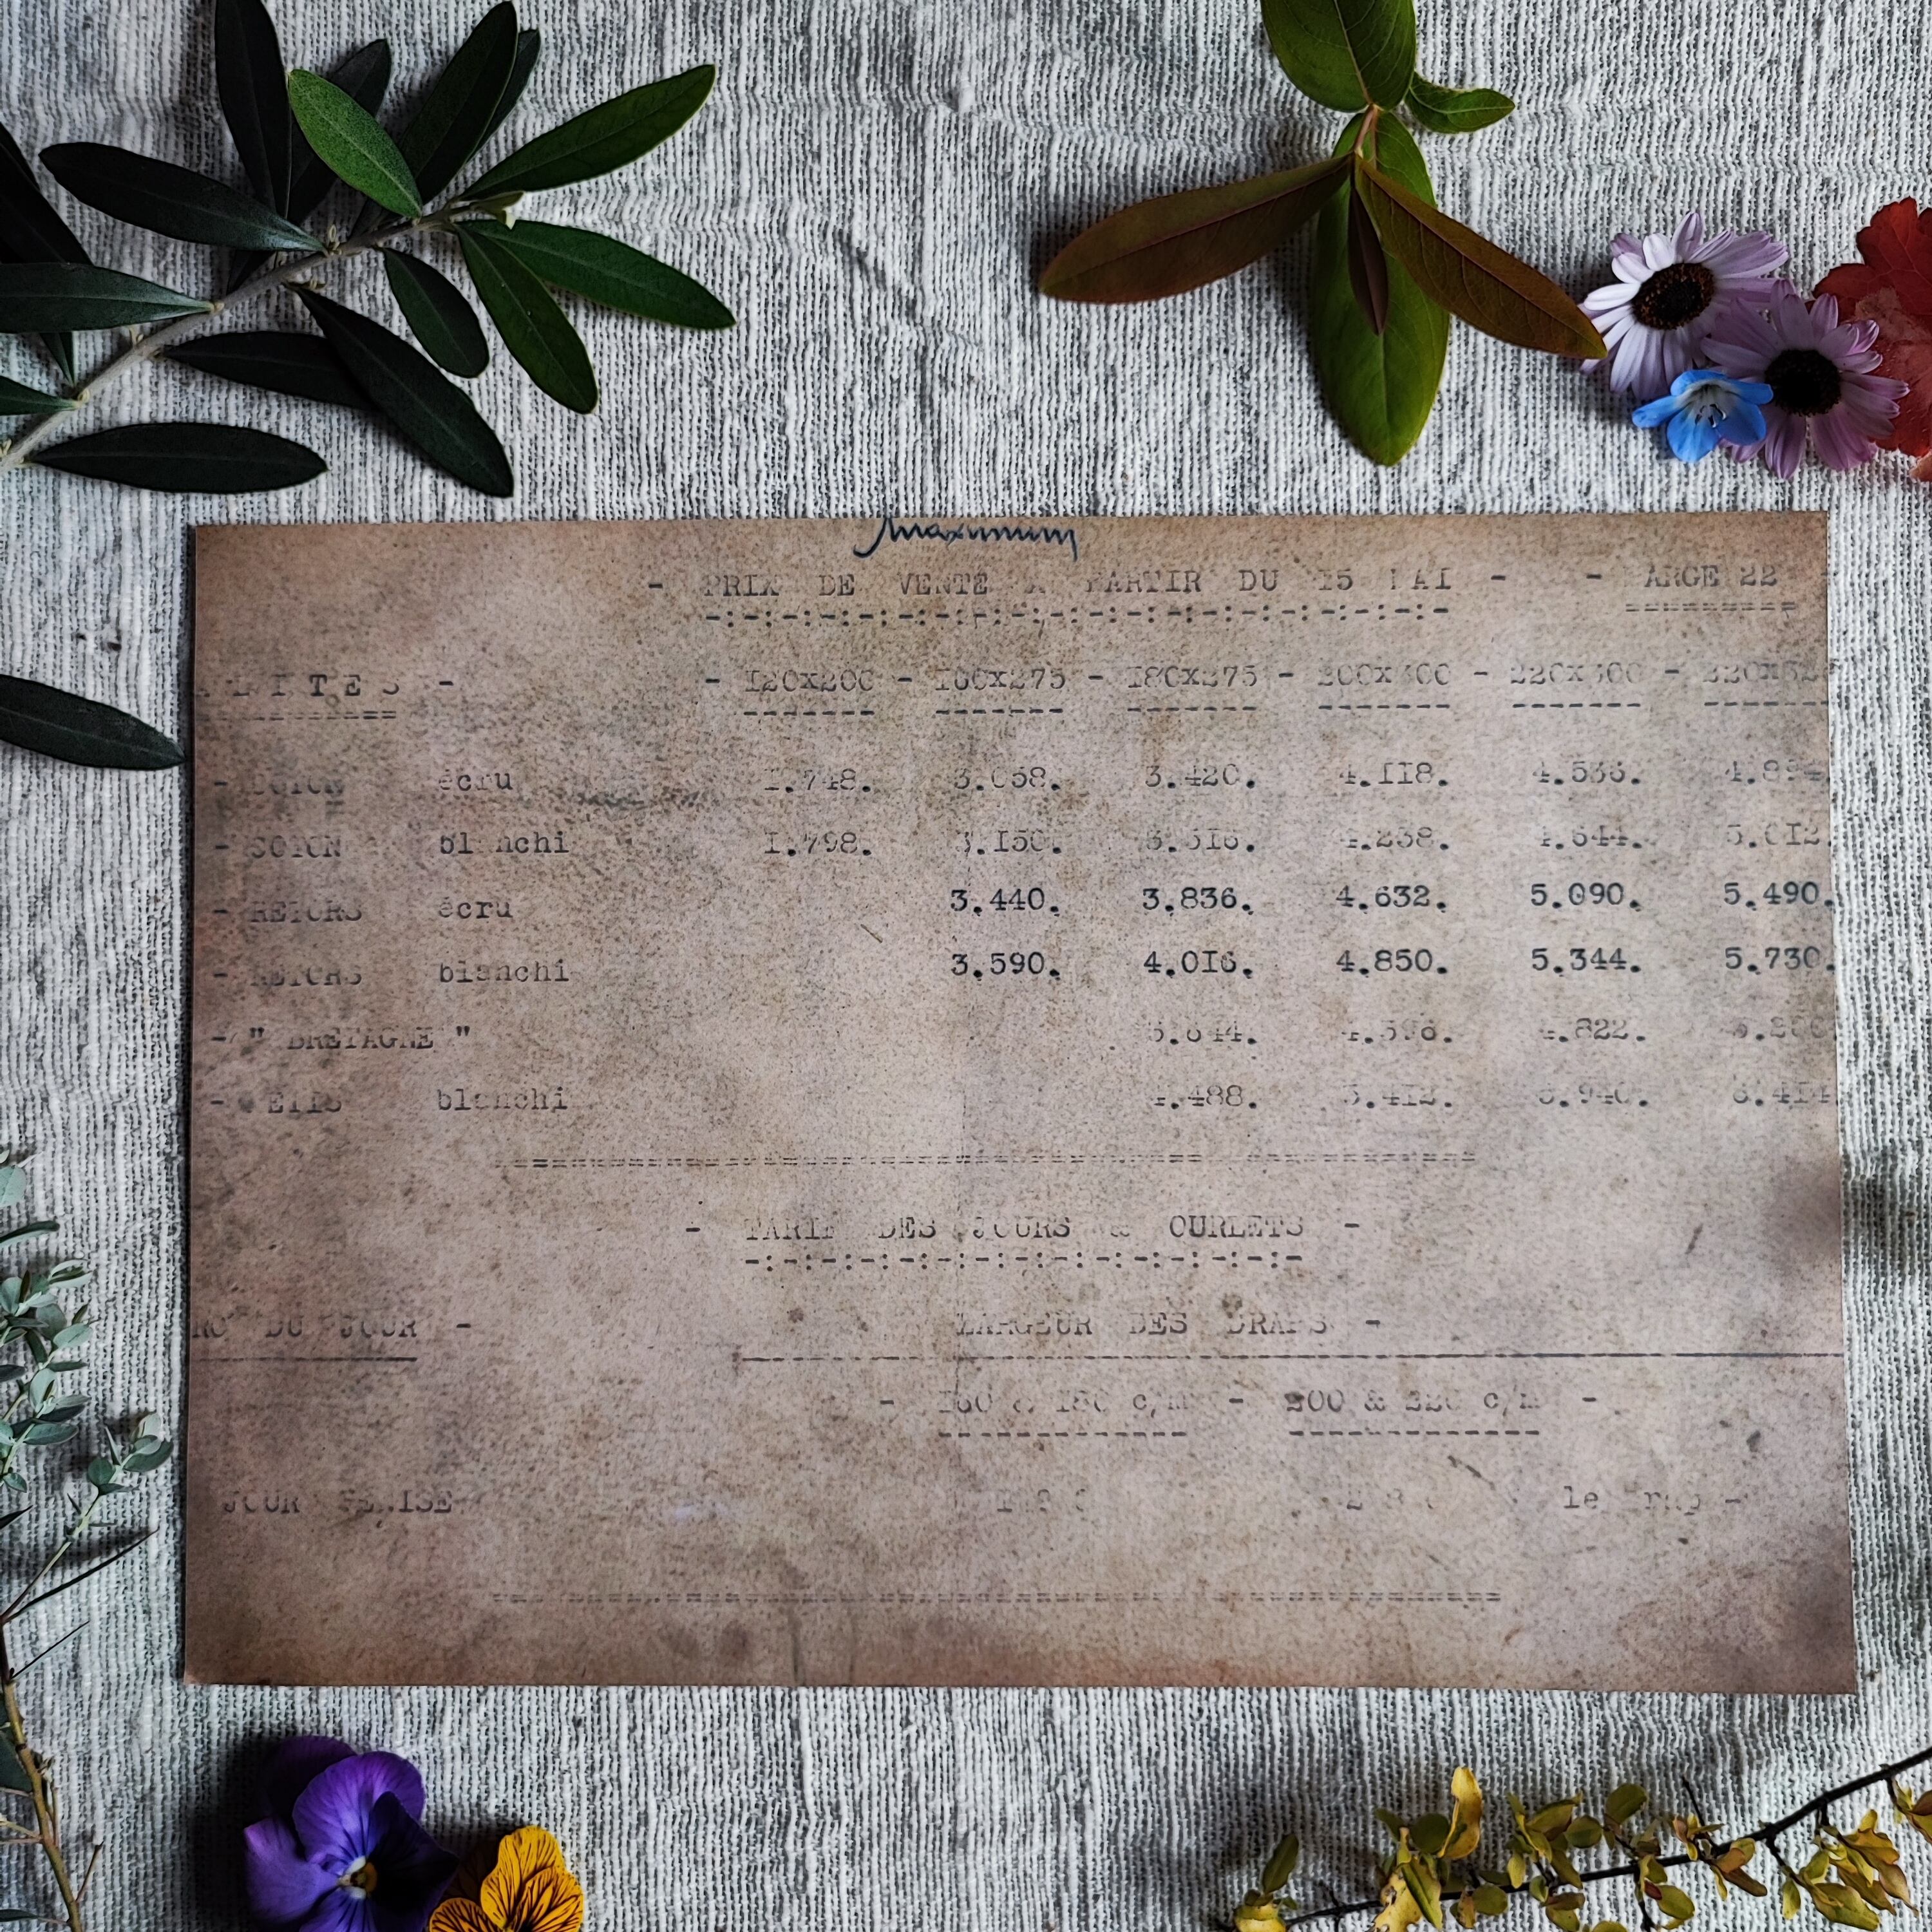 Maximum
- PRIX DE VENTE A PARTIR DU 15 MAI - - ARGE 22
LITES - - 120x200 - 160x275 - 180x275 - 200x300 - 220x300 -
- écru 1.748. 3.058. 3.420. 4.118. 4.536.
- blanchi 1.798. 3.150. 3.516. 4.238. 4.644. 5.012.
- RETORS écru 3.440. 3.836. 4.632. 5.090. 5.490.
- RETORS blanchi 3.590. 4.016. 4.850. 5.344. 5.730.
- " BRETAGNE " 4.822.
- blanchi 4.488. 5.412. 5.940. 6.414
- TARIF DES JOURS & OURLETS -
DU JOUR - LARGEUR DES DRAPS -
- 160 & 180 c/m - 200 & 220 c/m -
JOUR VENISE le drap -